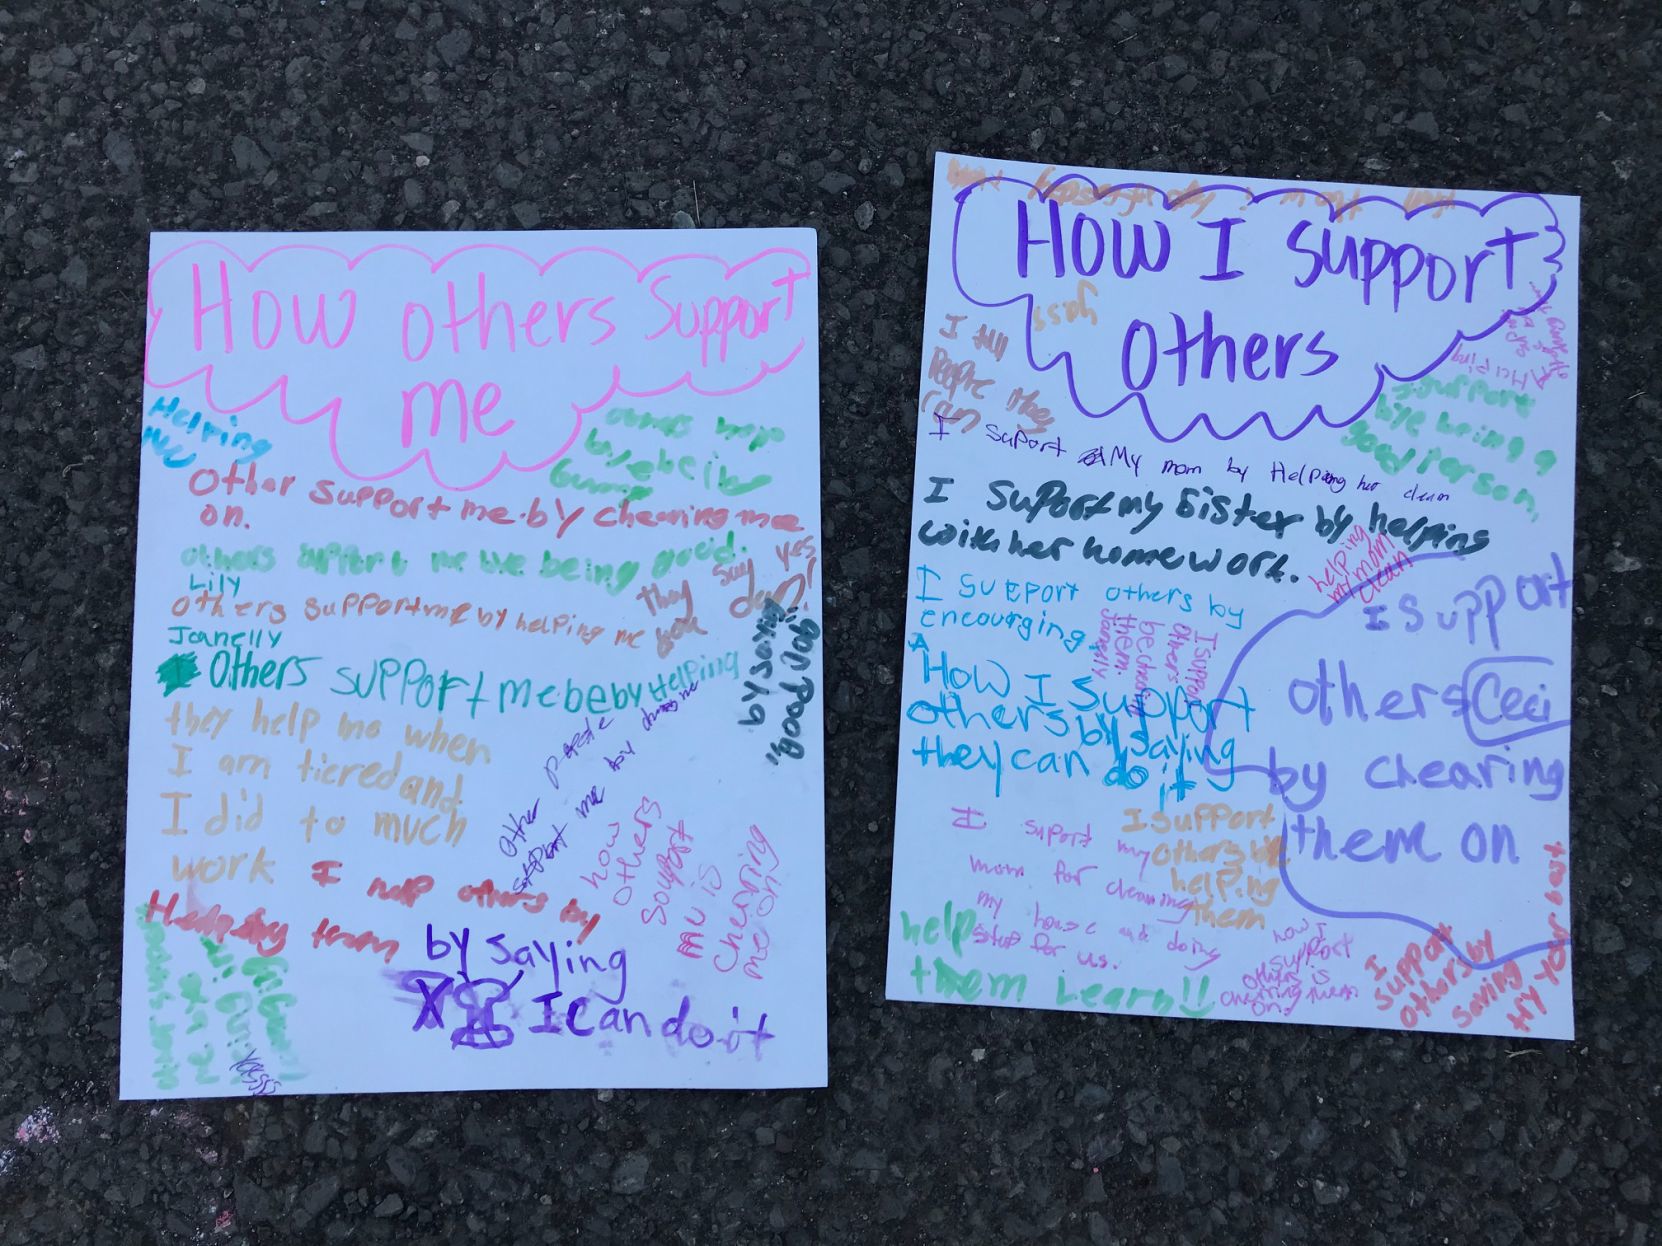 How others Support
me
Helping
me
Other support me by chearing me
on.
others support me bye being good.
Lily
others support me by helping me
they say yes
Joanelly
Others support me beby Helping
by saying
"good Job"
they help me when
I am tiered and
I did to much
work
Other people
support me by
how
others
souport
me is
chearing
me on.
I help others by
team
by saying
I Can do it
Yassss
How I Support
others
yass
I tell
People they
can
Helping
I support
bye being a
good Person,
I suport My mom by Helping her clean
I suport my sister by helping
with her homework.
helping
my mom
clean
I support others by
encourging
I suppor
Others
be chearing
them.
Joanelly
How I Support
others by saying
they can do it
I supp ort
others Ceci
by chearing
them on
I suport my
mom for cleaning
my house and doing
stuf for us.
I support
others by
helping
them
help
them Learn!!
how I
support
others is
chearing them
on.
I
support
others by
saying
try your best